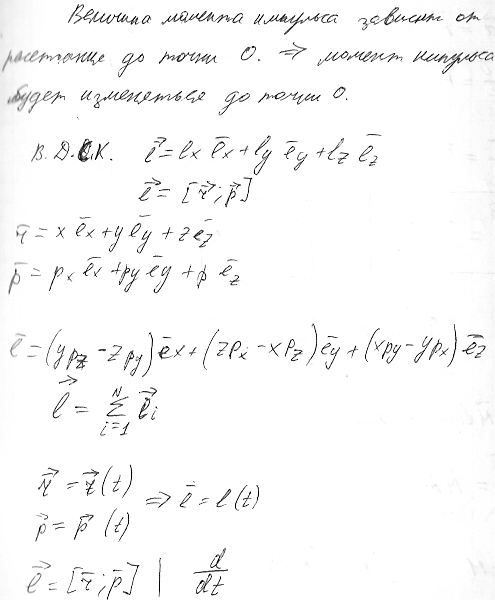 Величина момента импульса зависит от
расстояние до точки О. => момент импульса
будет изменяться до точки О.
В Д.С.К. l⃗ = lx ēx + ly ēy + lz ēz
l⃗ = [r⃗; p⃗]
r̄ = x ēx + y ēy + z ēz
p̄ = px ēx + py ēy + p ēz
l̄ = (ypz - zpy) ēx + (zpx - xpz) ēy + (xpy - ypx) ēz
l⃗ = ∑_{i=1}^{N} l⃗i
r⃗ = r⃗(t)
=> l̄ = l(t)
p⃗ = p⃗(t)
l⃗ = [r̄; p̄] | d/dt